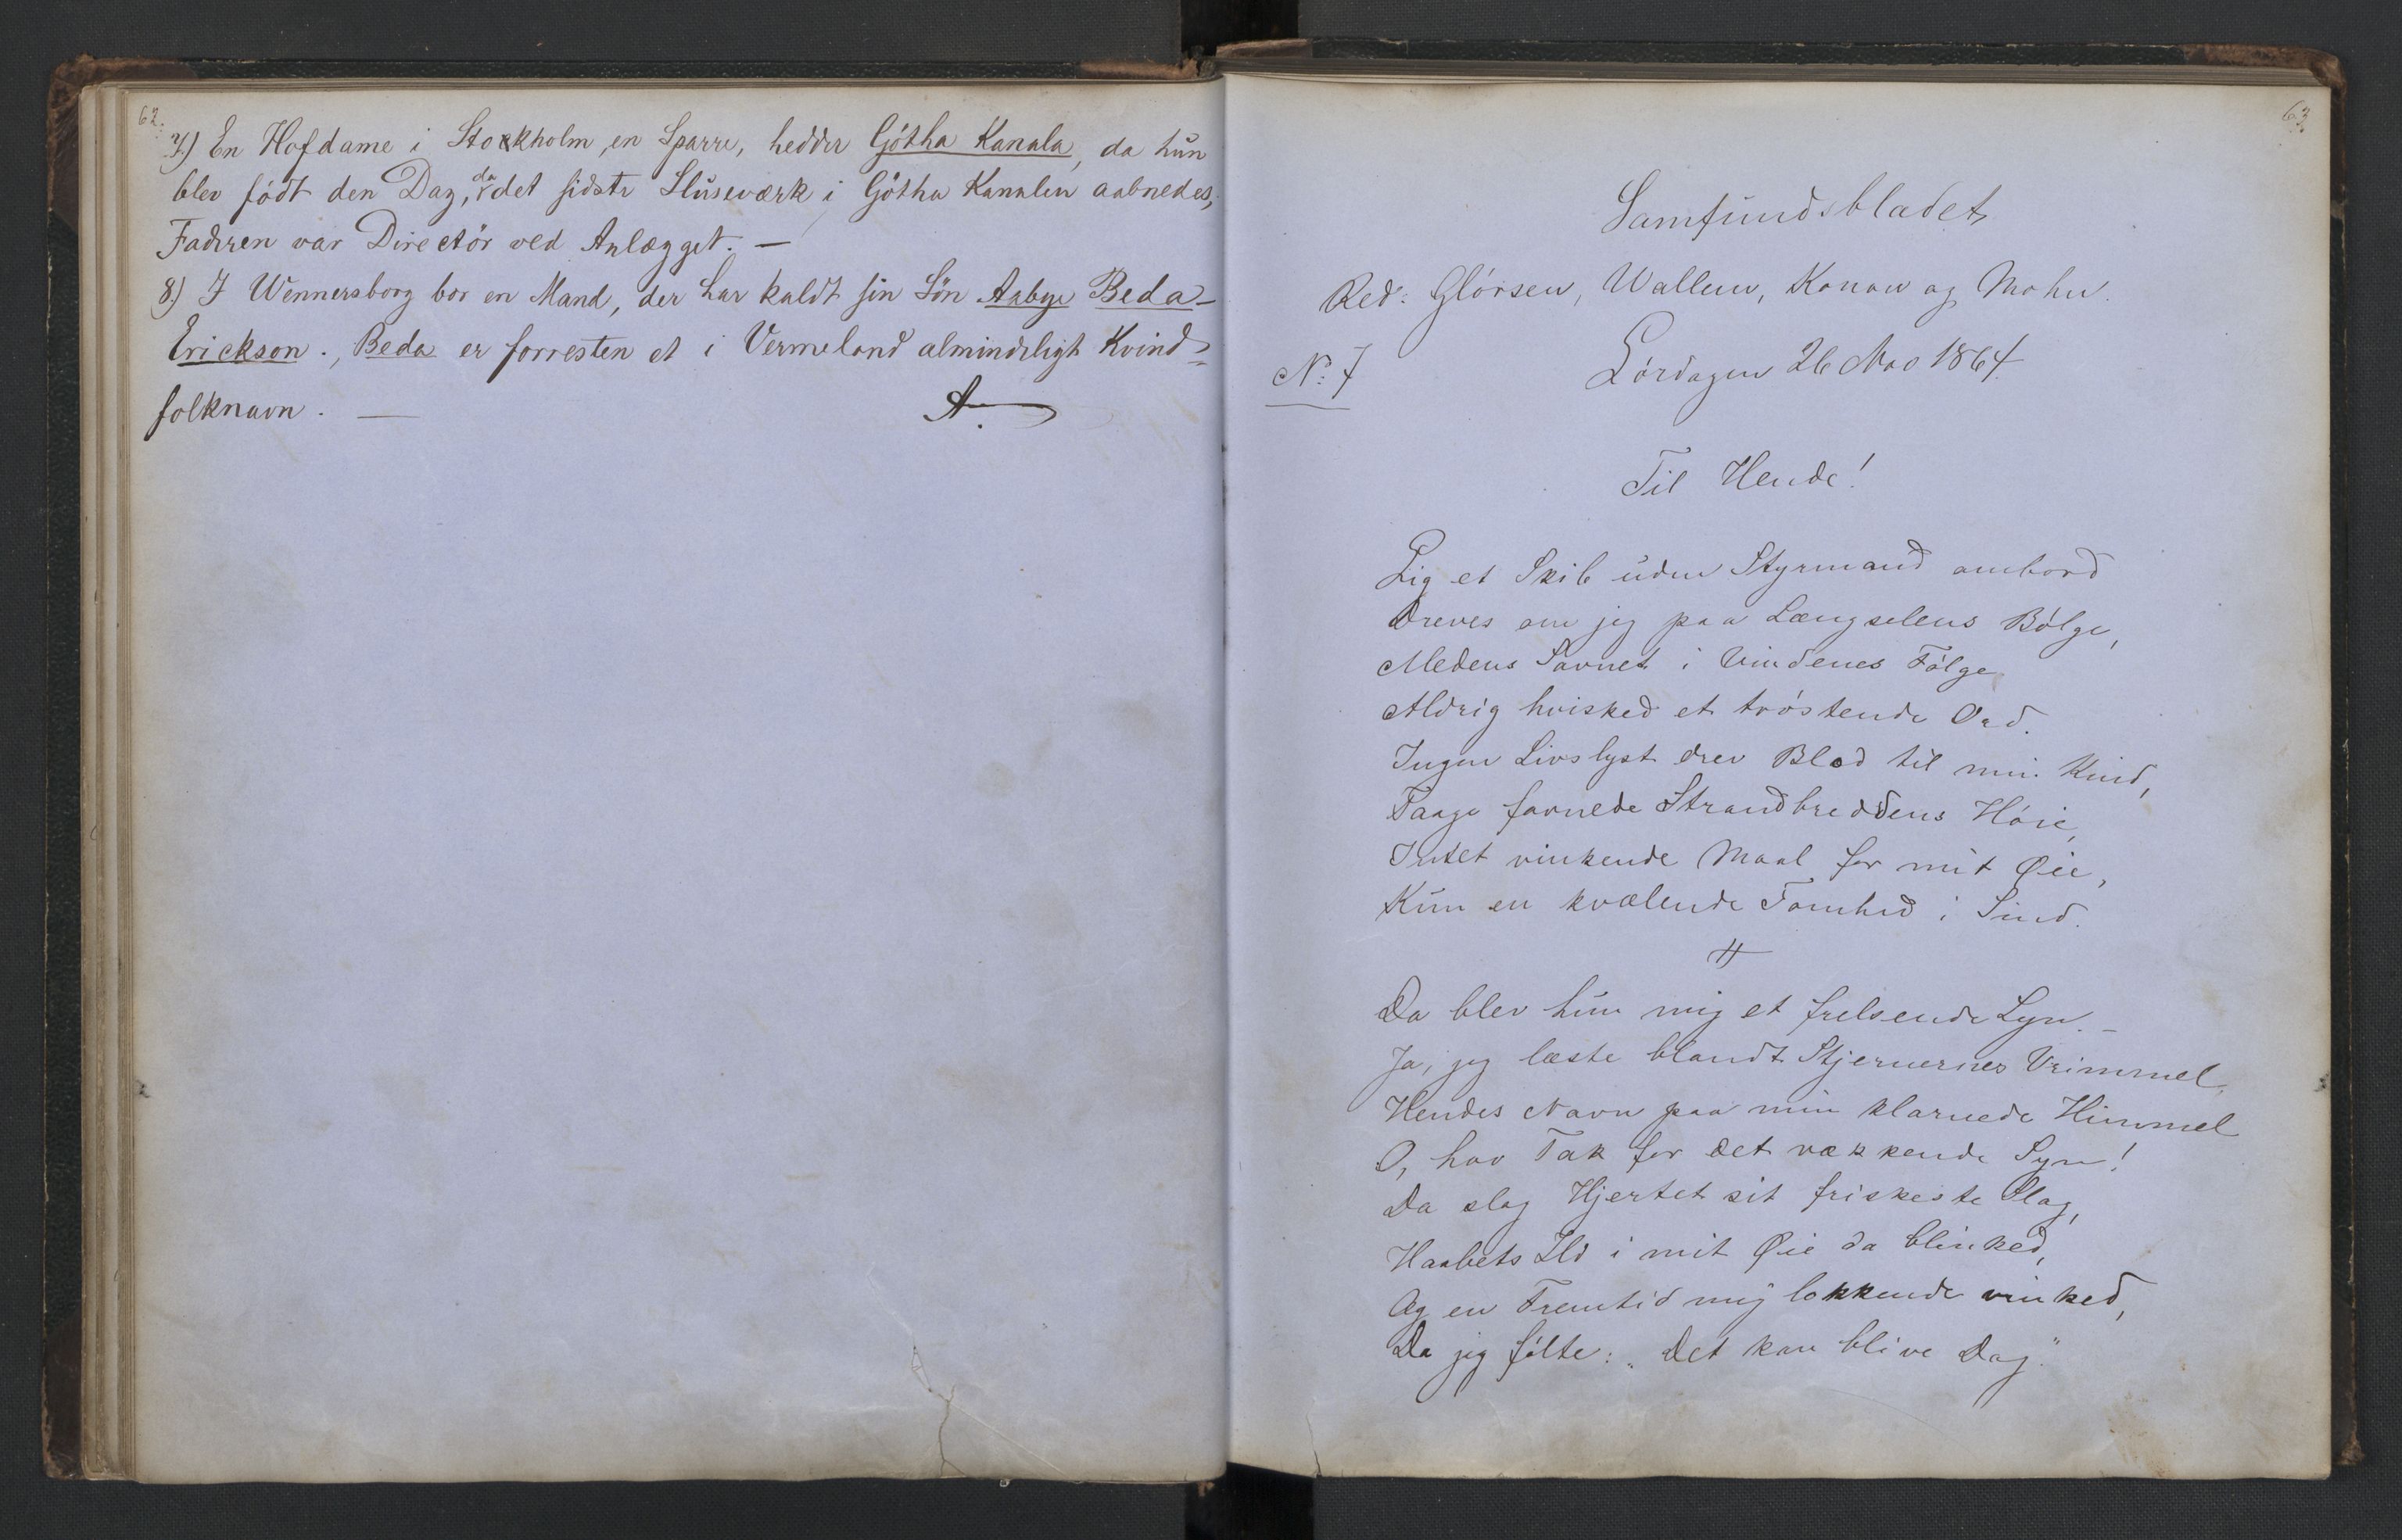 62.
7) En Hofdame i Stokholm, en Sparre, hedder Götha Kanala, da hun
blev födt den Dag, da det sidste Sluseværk i Götha Kanalen aabnedes;
Faderen var Directör ved Anlægget. —
8.) I Wennersborg bor en Mand, der har kaldt sin Sön Aabye Beda-
Erickson. Beda er forresten et i Vermeland almindeligt Kvind=
folknavn. —
A.
63.
Samfundsbladet
Red: Glørsen, Wallem, Konow og Mohn.
No: 7
Lørdagen 26 Nov 1864.
Til Hende!
Lig et Skib uden Styrmand ombord
Dreves om jeg paa Længselens Bølge,
Medens Savnet i Vindenes Følge
Aldrig hvisked et trøstende Ord.
Ingen Livslyst drev Blod til min Kind,
Taage favnede Strandbreddens Høie,
Intet vinkende Maal for mit Øie,
Kun en kvælende Tomhed i Sind.
Da blev hun mig et frelsende Lyn. –
Ja, jeg læste blandt Stjernernes Vrimmel
Hendes Navn paa min klarnede Himmel
O, hav Tak for det vækkende Syn!
Da slog Hjertet sit friskeste Slag,
Haabets Ild i mit Øie da blinked,
Og en Fremtid mig lokkende vinked,
Da jeg følte: „Det kan blive Dag."